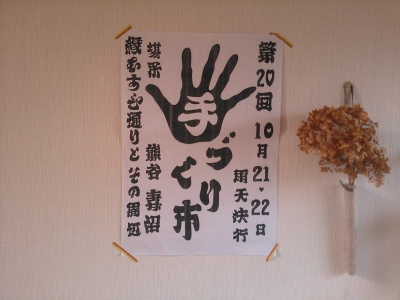 第20回 10月21・22日
雨天決行
手づくり市
場所 熊谷 妻沼
縁むすび通りとその周辺